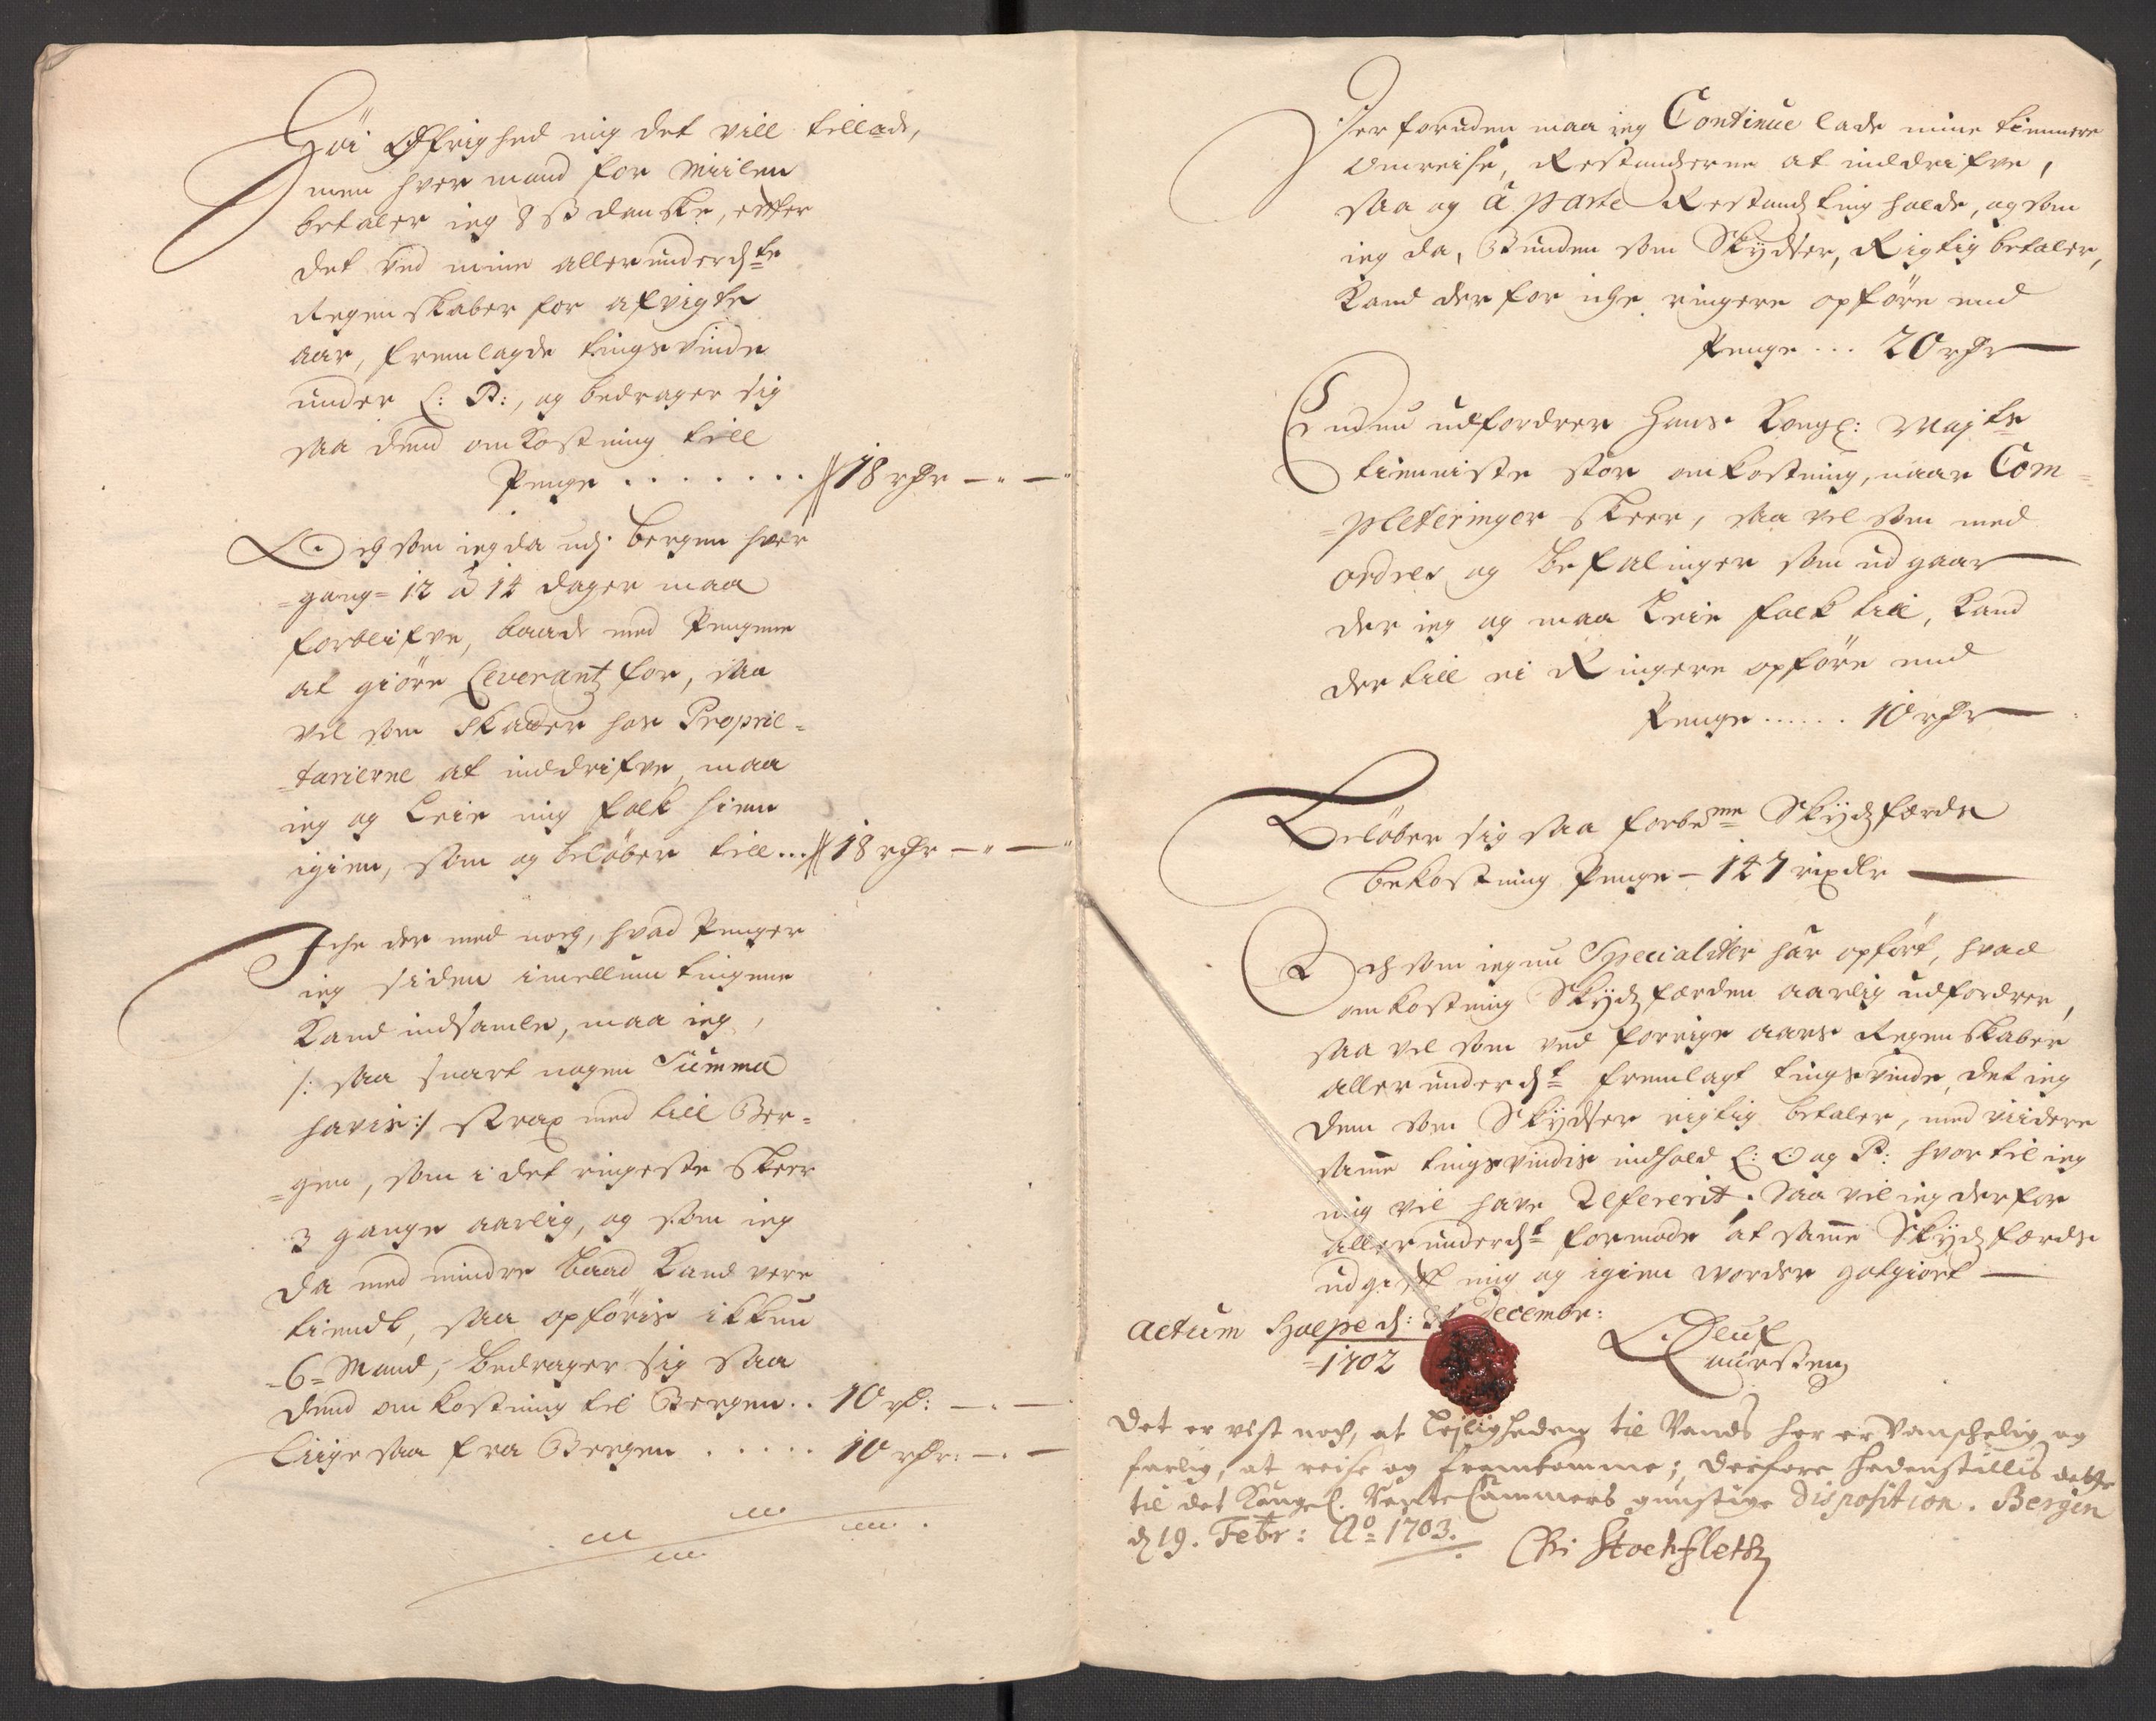 Høi Øffrighed mig det vill tillade,
men hver mand for Miilen
betaler ieg 8 ß danske, efter
det ved mine allerunderd:ste
Regenskaber for afvigte
aar, fremlagde tingsvinde
under L: P:, og bedrager sig
saa dend omkostning till
Penge . . . . . . . 18 rdr — " —
Och som ieg da udj Bergen hver
gang 12 à 14 dager maa
forblifve, baade med Pengene
at giöre Leverantz for, saa
vel som Skatter hos Proprie=
=tarierne at inddrifve, maa
ieg og Leie mig folk hiem
igien, som og beløber till ... 18 rdr — " —
Iche der med noch, hvad Penger
ieg siden imellum tingene
Kand indsamle, maa ieg,
/: saa snart nogen Summa
havis :/ strax med till Ber=
=gen, som i det ringeste skeer
3 gange aarlig, og som ieg
da med mindre baad Kand vere
tiendt, saa opføris ikkun
6 Mand, bedrager sig saa
dend omkostning til Bergen . . 10 rd: — . —
Liige saa fra Bergen . . . . . 10 rdr: — . —
Der foruden maa ieg Continue lade mine tiennere
omreise, Restantzerne at inddrifve,
saa og à parte Restandtz ting holde, og som
ieg da, Bunden som Skydser, Rigtig betaler,
Kand derfor iche ringere opføre end
Penge ... 20 rdr —
Endnu udfordrer Hans Kongl: Majts
tienniste stor omkostning, naar Com=
=pleteringer skeer, saa vel som med
ordres og befalinger som udgaar
der ieg og maa Leie folk till, Kand
der till ei Ringere opføre end
Penge ...... 10 rdr —
Beløber sig saa forbe:me Skydsferds
bekostning Penge — 147 rixdlr —
Och som ieg nu Specialiter har opført, hvad
omkostning Skydsferden aarlig udfordrer,
saa vel som ved forrige aars Regenskaber
allerunderd:st fremlagt tingsvinde, det ieg
dem som Skydser rigtig betaler, med viidere
samme tingsvindis indhold L: O og P: hvortil ieg
mig vil have Refererit; Saa vil ieg derfor
allerunderd:st formode at samme Skydsferds
udgift mig og igien vorder gotgiort —
Actum d: 31 Decembr:
1702
Det er vist noch, at Lejligheden til Vands her er vanschelig og
farlig, at reise og fremkomme; derfore hedenstillis dette
til det Kongel. Rente Cammers gunstige disposition. Bergen
d 19. Febr: Ao 1703.
Chr: Stockfleth